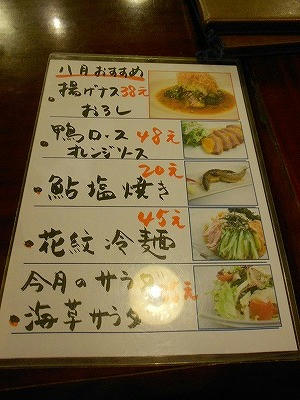 八月おすすめ
・揚げナス38元
おろし
・鴨ロース 48元
オレンジソース
20元
・鮎塩焼き
45元
・花紋冷麺
今月のサラダ
・海草サラダ 元